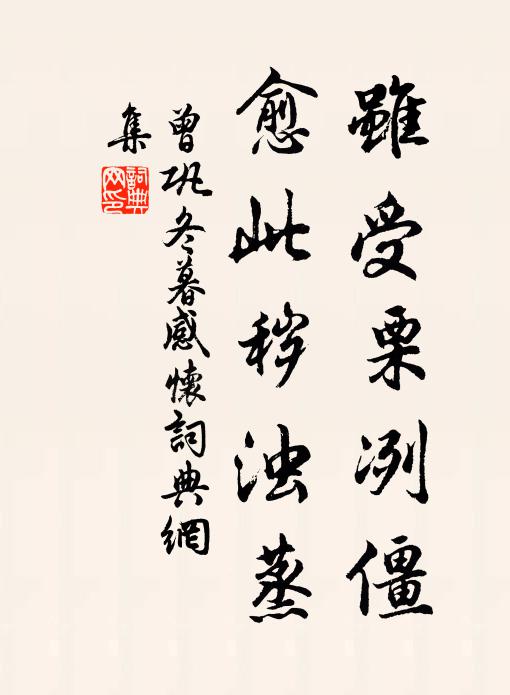 雖受栗冽僵
愈此秽浊蒸
曾巩冬暮感懷詞典網
集
詞典网印